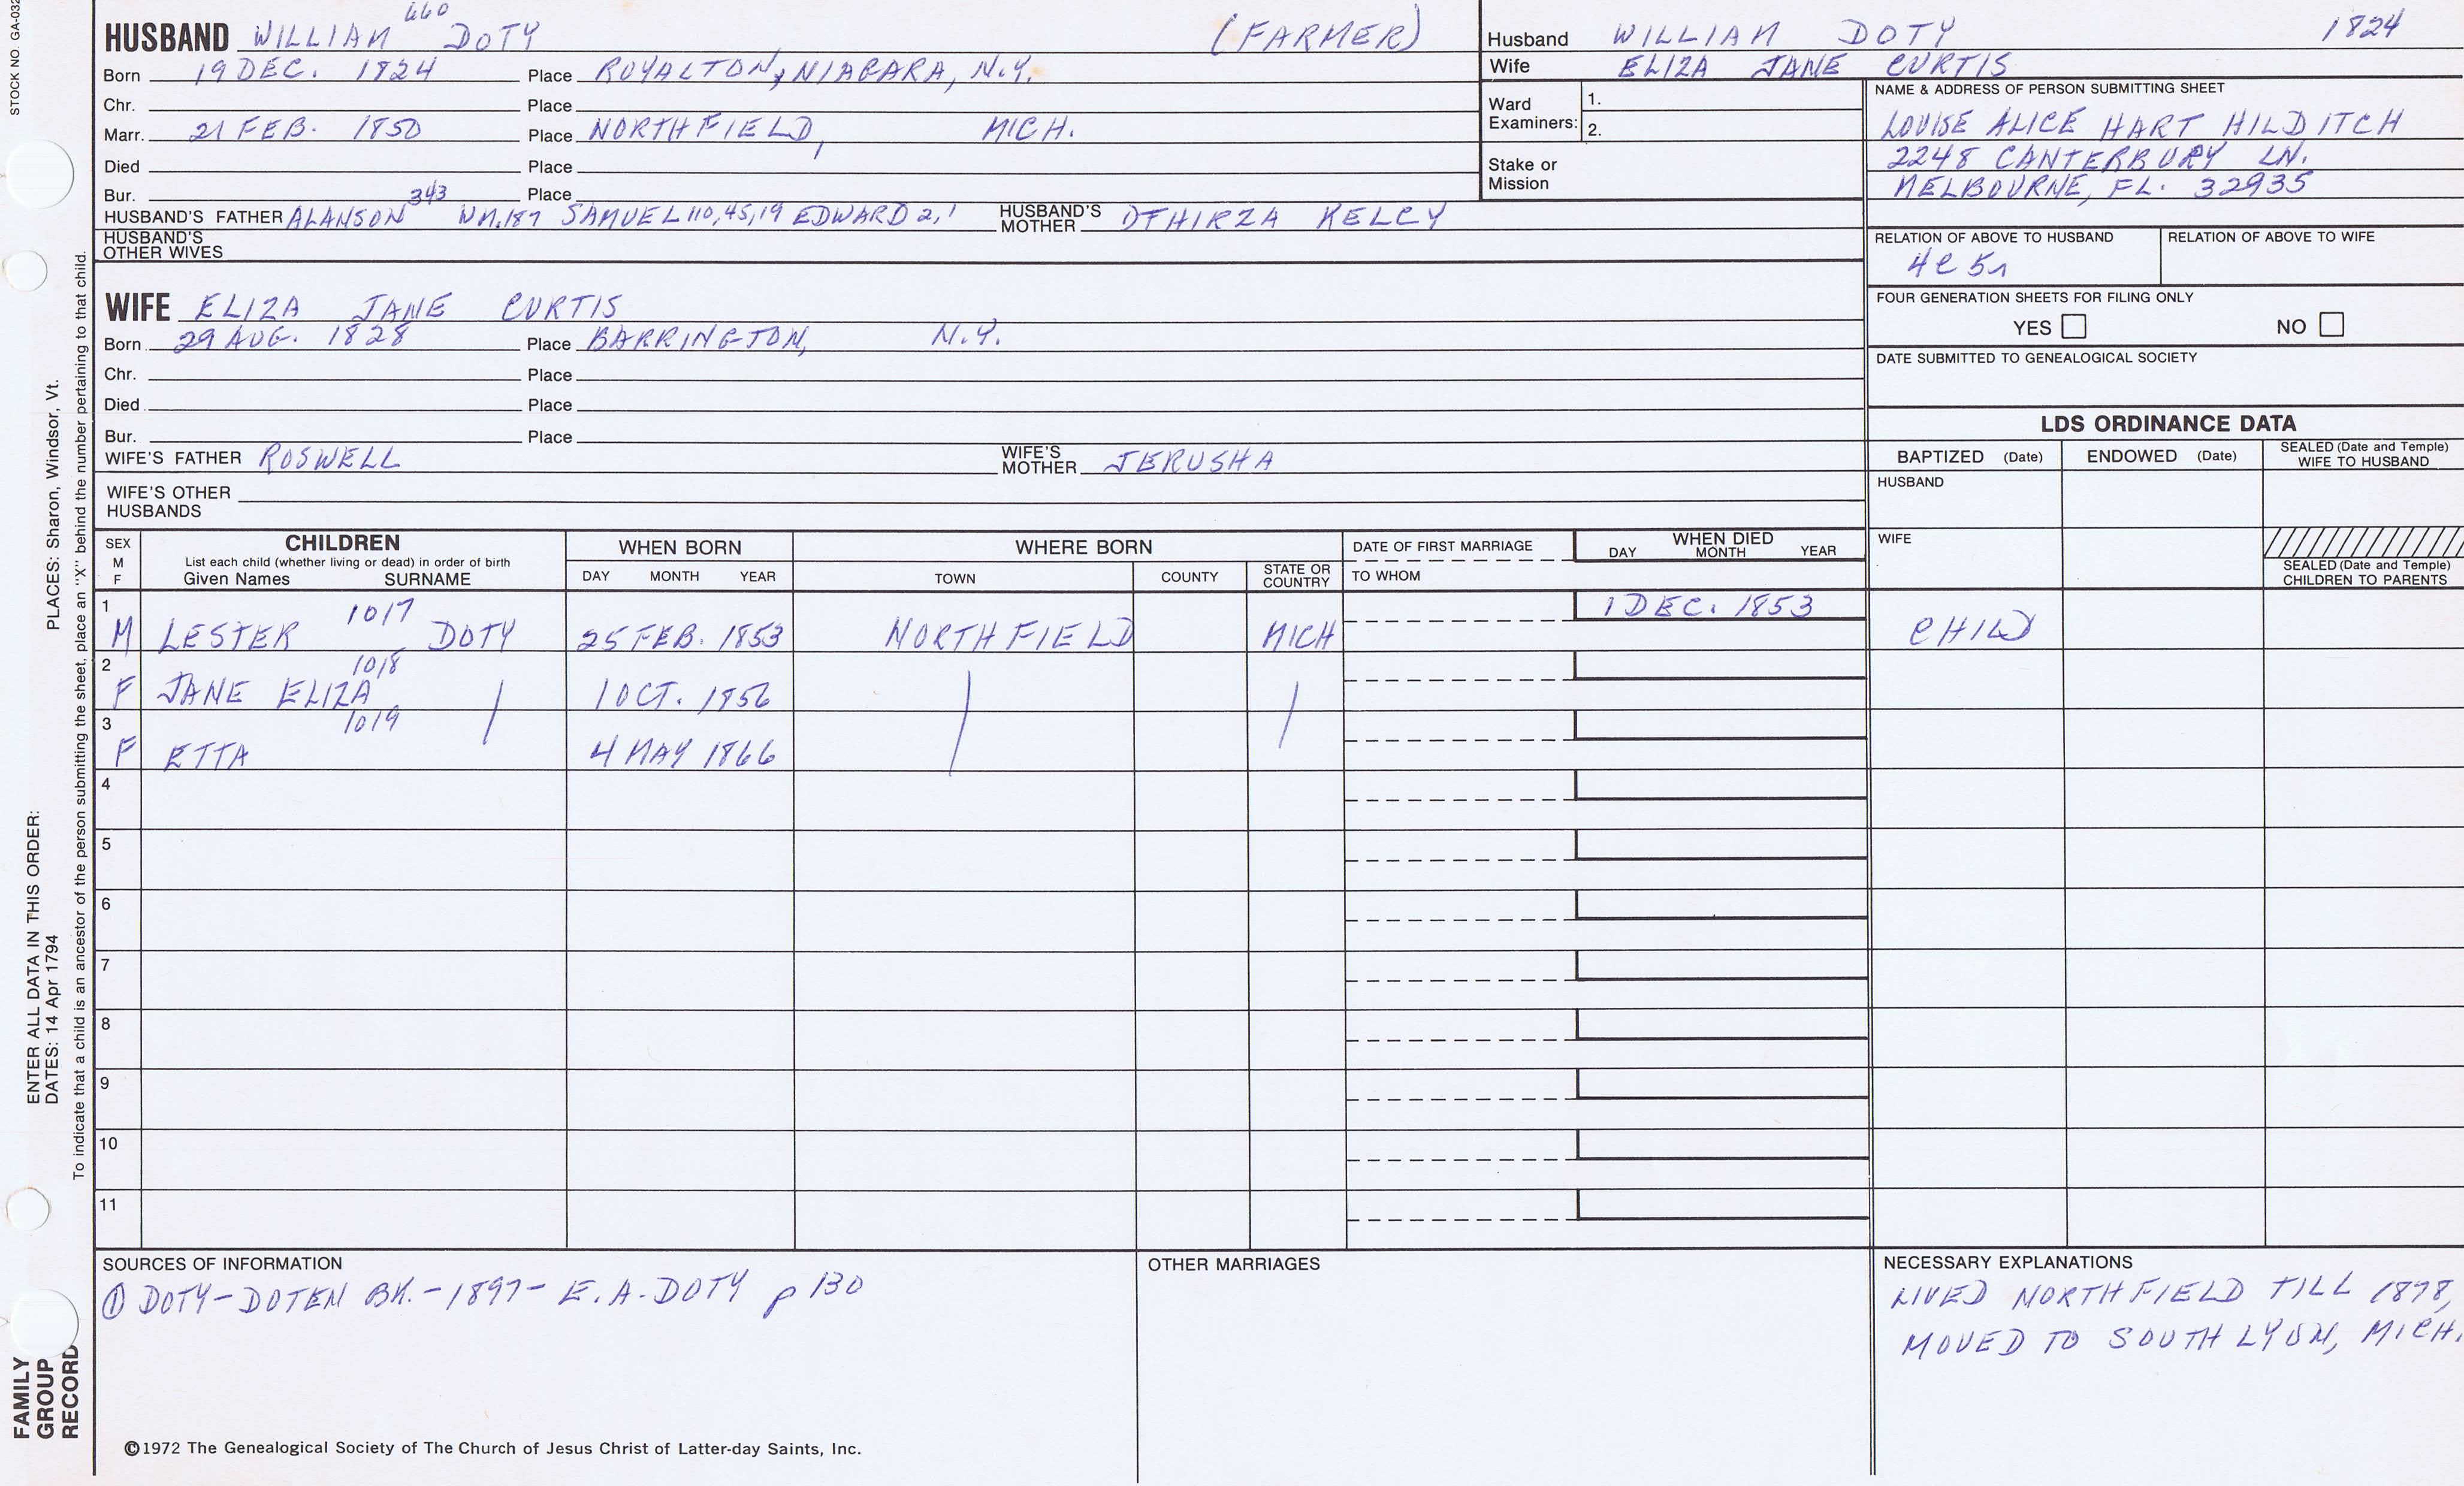 STOCK NO. GA-032
660
HUSBAND WILLIAM DOTY (FARMER)
Born 19 DEC. 1824 Place ROYALTON, NIAGARA, N.Y.
Chr. Place
Marr. 21 FEB. 1850 Place NORTHFIELD, MICH.
Died Place
Bur. Place
343
HUSBAND'S FATHER ALANSON WM.187 SAMUEL 110,45,19 EDWARD 2,1 HUSBAND'S MOTHER DTHIRZA KELCY
HUSBAND'S OTHER WIVES
Husband WILLIAM DOTY 1824
Wife ELIZA JANE CURTIS
Ward Examiners: 1.
2.
Stake or Mission
NAME & ADDRESS OF PERSON SUBMITTING SHEET
LOUISE ALICE HART HILDITCH
2248 CANTERBURY LN.
MELBOURNE, FL. 32935
RELATION OF ABOVE TO HUSBAND RELATION OF ABOVE TO WIFE
4C 5r
FOUR GENERATION SHEETS FOR FILING ONLY
YES NO
DATE SUBMITTED TO GENEALOGICAL SOCIETY
WIFE ELIZA JANE CURTIS
Born 29 AUG. 1828 Place BARRINGTON, N.Y.
Chr. Place
Died Place
Bur. Place
WIFE'S FATHER ROSWELL WIFE'S MOTHER JERUSHA
WIFE'S OTHER HUSBANDS
LDS ORDINANCE DATA
BAPTIZED (Date) ENDOWED (Date) SEALED (Date and Temple) WIFE TO HUSBAND
HUSBAND
WIFE
SEALED (Date and Temple) CHILDREN TO PARENTS
SEX M F CHILDREN List each child (whether living or dead) in order of birth Given Names SURNAME WHEN BORN DAY MONTH YEAR WHERE BORN TOWN COUNTY STATE OR COUNTRY DATE OF FIRST MARRIAGE TO WHOM WHEN DIED DAY MONTH YEAR
1 M LESTER 1017 DOTY 25 FEB. 1853 NORTHFIELD MICH 1 DEC. 1853 CHILD
2 F JANE ELIZA 1018 1 OCT. 1856
3 F ETTA 1019 4 MAY 1866
4
5
6
7
8
9
10
11
SOURCES OF INFORMATION
① DOTY-DOTEN BK.-1897- E.A. DOTY p 130
OTHER MARRIAGES
NECESSARY EXPLANATIONS
LIVED NORTHFIELD TILL 1878,
MOVED TO SOUTH LYON, MICH.
©1972 The Genealogical Society of The Church of Jesus Christ of Latter-day Saints, Inc.
FAMILY
GROUP
RECORD
ENTER ALL DATA IN THIS ORDER:
DATES: 14 Apr 1794 PLACES: Sharon, Windsor, Vt.
To indicate that a child is an ancestor of the person submitting the sheet, place an "X" behind the number pertaining to that child.